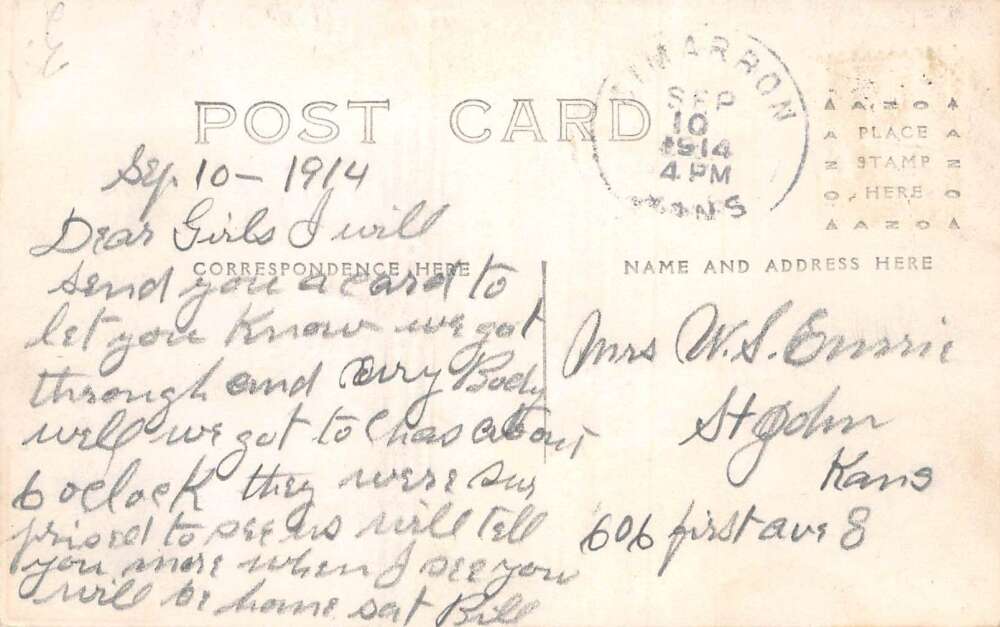 CIMARRON
SEP
10
1914
4 PM
KANS
AZO
PLACE
STAMP
HERE
AZO
POST CARD
CORRESPONDENCE HERE
NAME AND ADDRESS HERE
Sep. 10 - 1914
Dear Girls I will
send you a card to
let you know we got
through and evry Body
well we got to Chas about
6 oclock they were sur
prised to see us will tell
you more when I see you
will be home sat Bill
Mrs W.S.
St John
Kans
606 first ave E